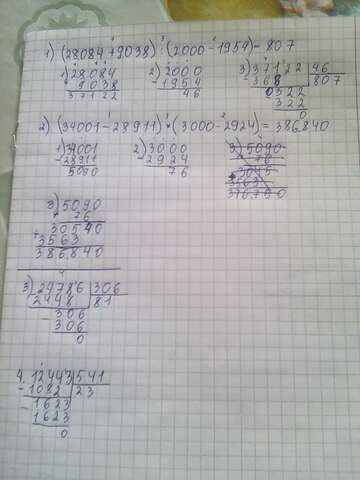 1) (28084+9038):(2000-1954)=807
1) 28084 2) 2000 3) 37122 | 46
+ 9038 - 1954 - 368 | 807
37122 46 0322
322
0
2) (34001-28911)•(3000-2924)=386840
1) 34001 2) 3000 3) 5090
-28911 -2924 76
5090 76 3045
3563
3) 5090
× 76
30540
+ 3563
386840
3) 24786 | 306
2448 | 81
- 306
306
0
4. 12443 | 541
- 1082 | 23
- 1623
1623
0